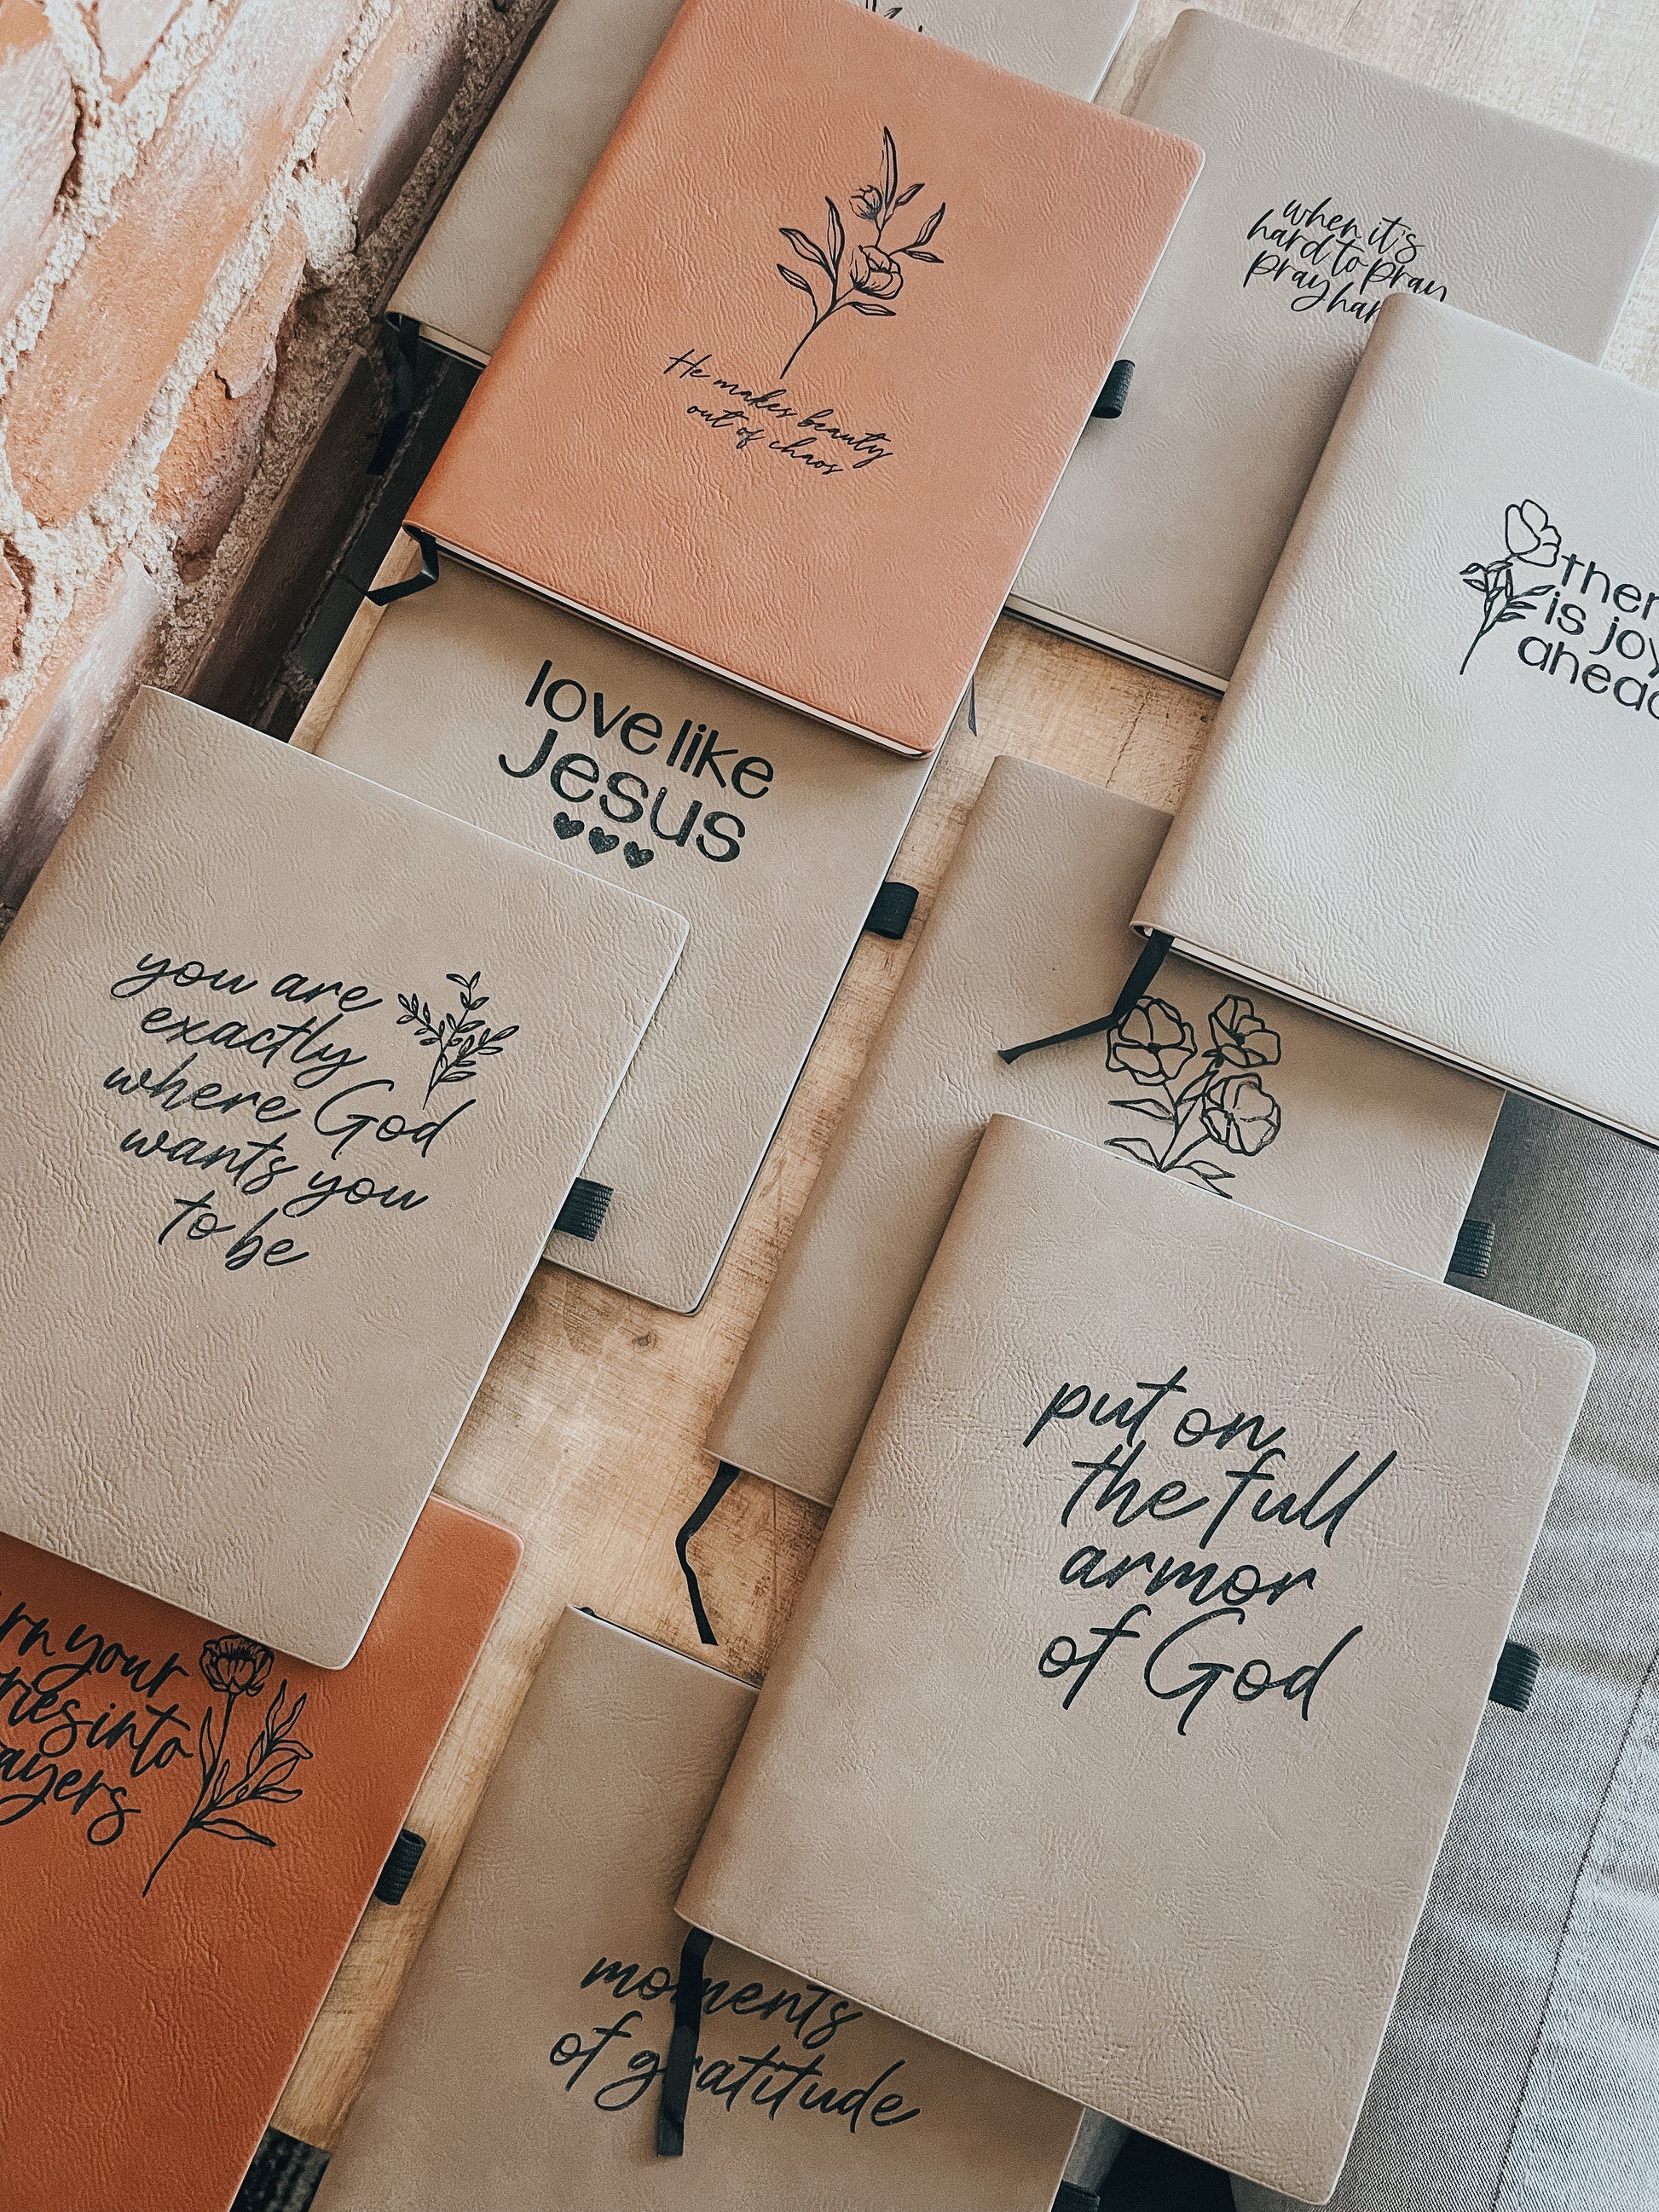 He makes beauty
out of chaos
when it's
hard to pray
pray
there
is joy
ahead
love like
Jesus
you are
exactly
where God
wants you
to be
put on
the full
armor
of God
your
into
moments
of gratitude